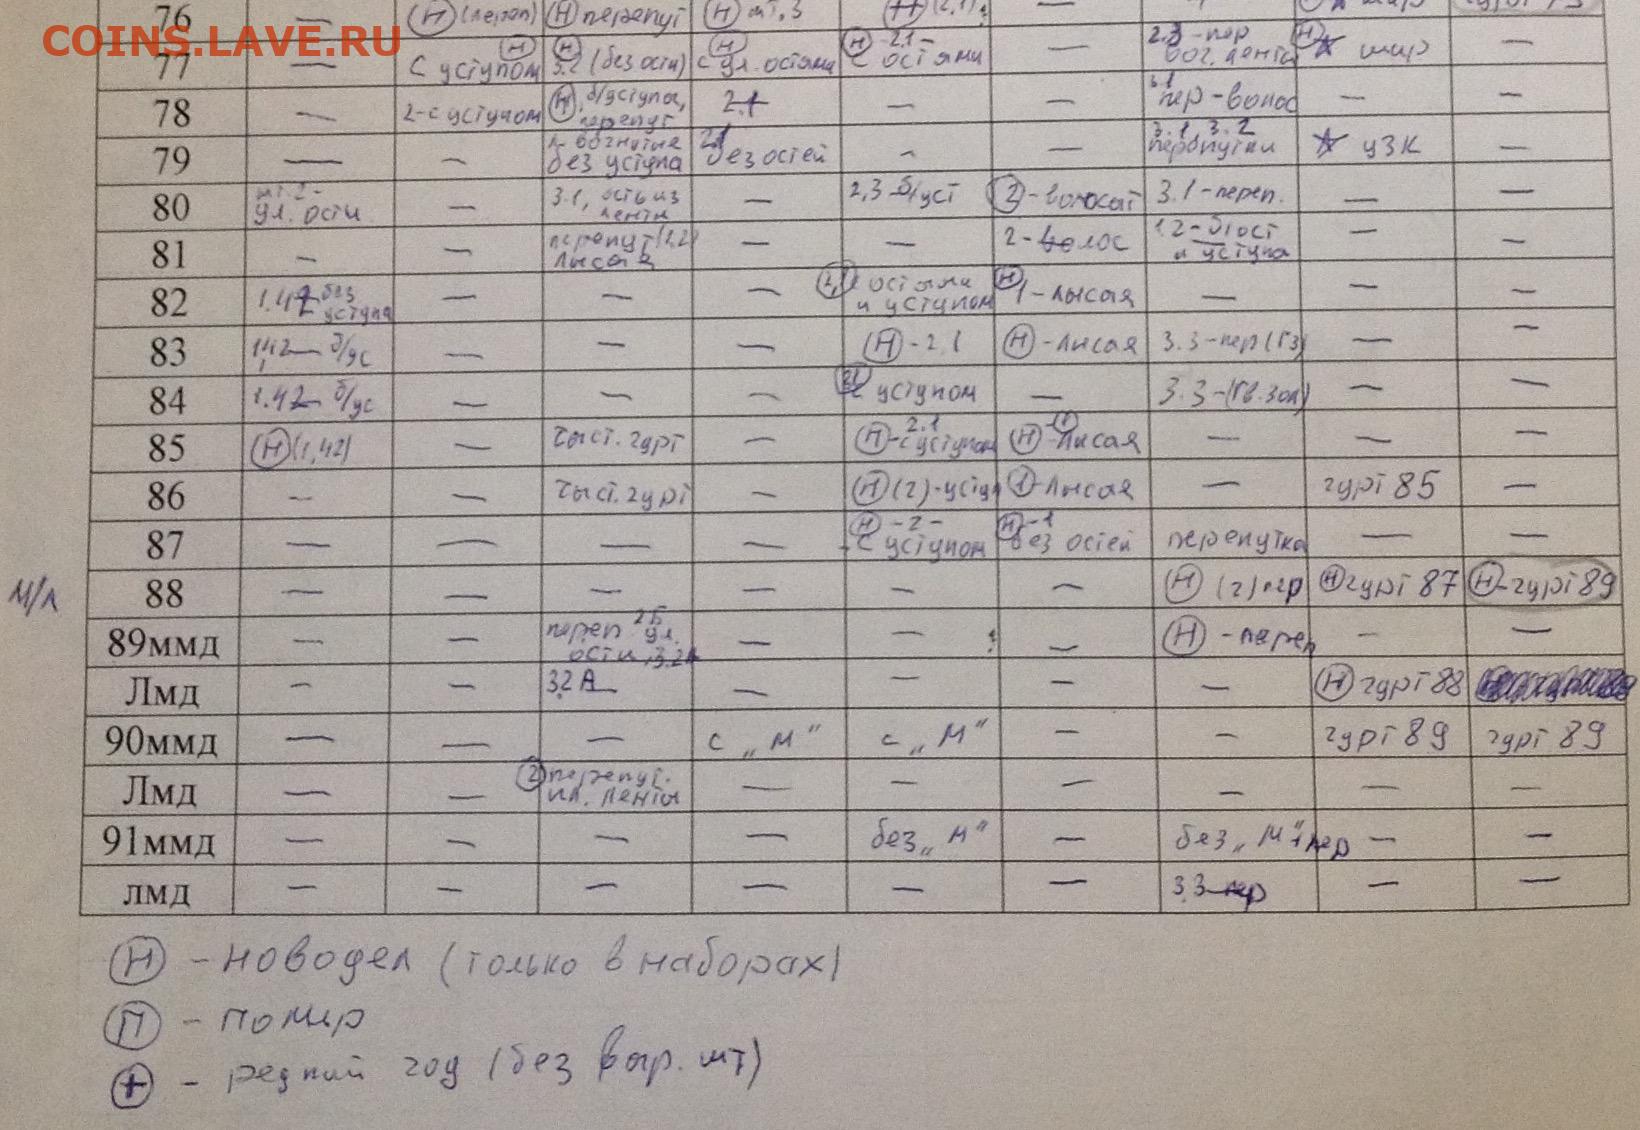 COINS.LAVE.RU
76 — (Н) (переп) (Н) перепут (Н) шт.3 —
77 — (Н) с уступом (Н) 3.2 (без ости) (Н) с ул. остями (Н) -2.1- с остями — 2.3 - пер вог. лента (Н) ☆ шир —
78 — 2-с уступом (Н), б/уступа, перепут 2.1 — — 3.1 пер-волос — —
79 — — л-вогнутые без уступа 2.1 без остей - — 3.1, 3.2 перепутки ☆ узк —
80 шт. 2- ул. ости — 3.1, ость из ленты — 2,3 б/уст (2)-волосат 3.1-переп. — —
81 — — перепут (1,2) лысая — — 2-волос 1.2-б/ост и уступа — —
82 1.42 без уступа — — — (2,1) с остями и уступом (Н) 1-лысая — — —
83 1,42— б/ус — — — (Н)-2.1 (Н)-лысая 3.3-пер (Гз) — —
84 1.42— б/ус — — — (2.1) с уступом — 3.3-(Гв.Зол) — —
85 (Н) (1,42) — тыст. гурт — (Н) 2.1 -с уступом (Н) -лысая — — —
86 - — тыст. гурт — (Н) (2)-уступ (1)-лысая — гурт 85 —
87 — — — — (Н) -2- с уступом (Н) -1 без остей перепутка — —
М/Л
88 — — — — — — (Н) (2) пер (Н) гурт 87 (Н)-гурт 89
89ммд — — переп 2Б ул. ости, 3.2А — — — (Н) - переп — —
Лмд — — 3.2А — — — — (Н) гурт 88
90ммд — — — с „М" с „М" — — гурт 89 гурт 89
Лмд — — (2) перепут. пл. ленты — — — — — —
91ммд — — — — без „М" — без „М" 1 пер — —
лмд — — — — — — 3.3-пер — —
(Н) - новодел (только в наборах)
(П) - помир
(+) - редкий год (без вар. шт)